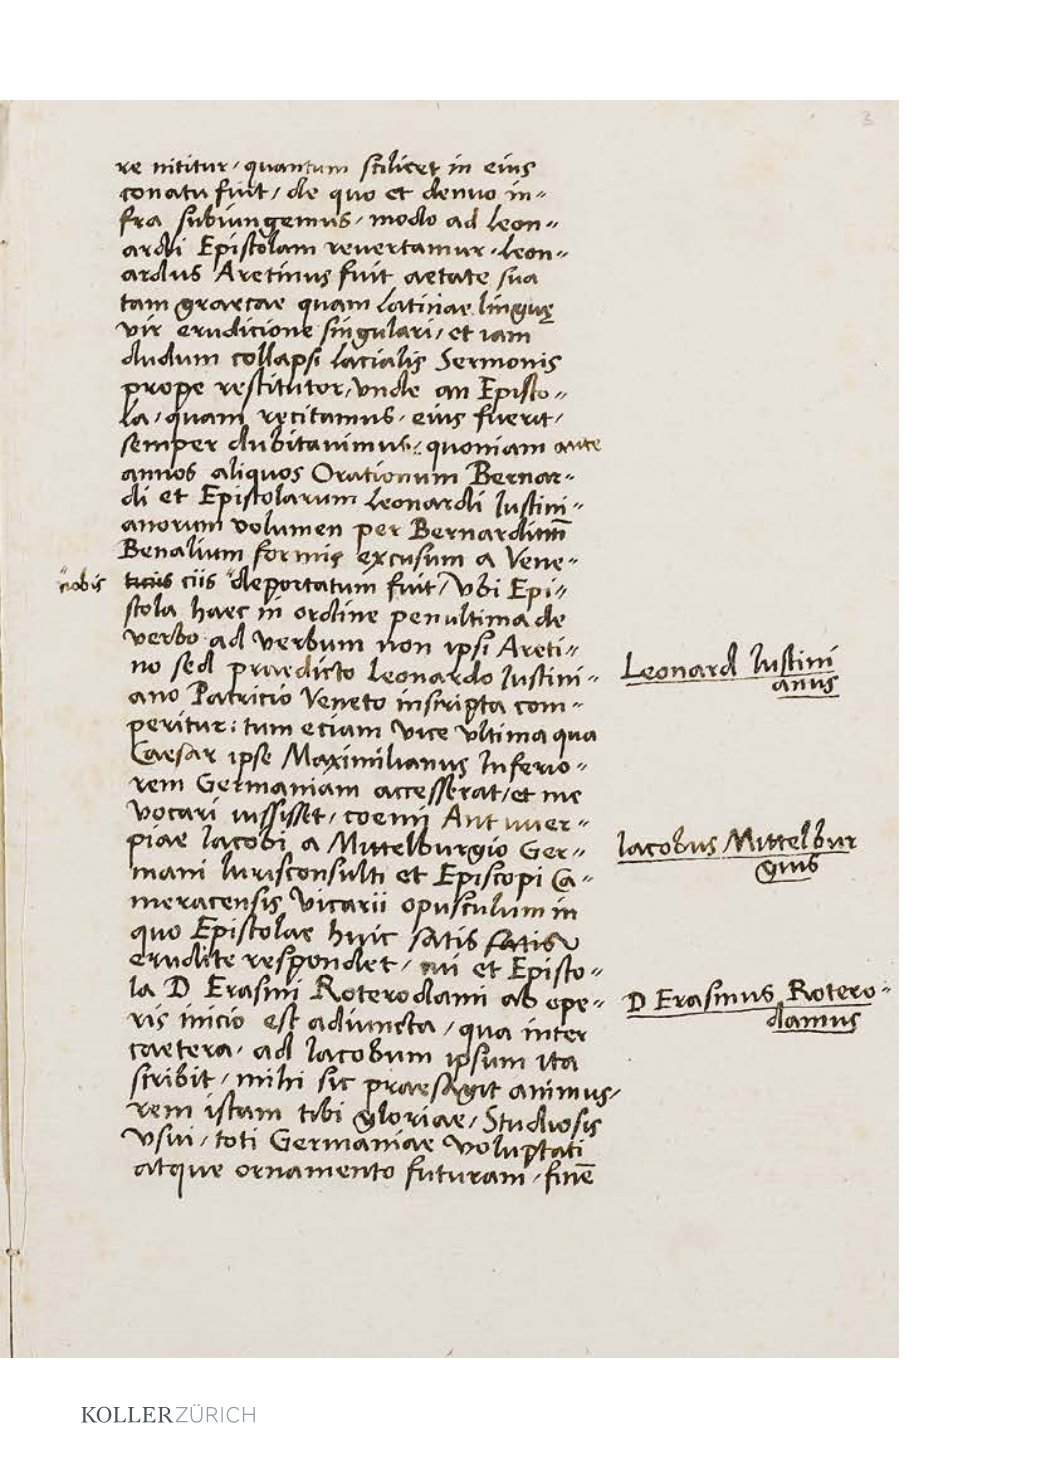 3
re nititur / quantum scilicet in eius
conatu fuit / de quo et denuo in=
fra subiungemus / modo ad Leon=
ardi Epistolam reuertamur. Leon=
ardus Aretinus fuit aetate sua
tam graecae quam Latinae linguę
vir erudicione singulari / et iam
dudum collapsi lacialis Sermonis
prope restitutor / vnde an Episto=
la / quam recitamus / eius fuerit /
semper dubitauimus / quoniam ante
annos aliquos Orationum Bernar=
di et Epistolarum Leonardi Iustini=
anorum volumen per Bernardinū
Benalium formis excusum a Vene=
"nobis
ciis "deportatum fuit / Vbi Epi=
stola haec in ordine penultima de
verbo ad verbum non ipsi Areti=
no sed praedicto Leonardo Iustini=
ano Patricio Veneto inscripta com=
peritur: tum eciam vice vltima qua
Caesar ipse Maximilianus Inferio=
rem Germaniam accesserat / et me
vocari iussisset / coemi Antuuer=
piae Iacobi a Mittelburgio Ger=
mani Iurisconsulti et Episcopi Ca=
meracensis Vicarii opusculum in
quo Epistolae huic satis satis
erudite respondet / cui et Episto=
la D Erasmi Roterodami ab ope=
ris inicio est adiuncta / qua inter
caetera / ad Iacobum ipsum ita
scribit / mihi sic praesagit animus /
rem istam tibi gloriae / Studiosis
vsui / toti Germaniae voluptati
atque ornamento futuram / finē
Leonard Iustini
anus
Iacobus Mittelbur
gius
D Erasmus Rotero=
damus
KOLLER ZÜRICH